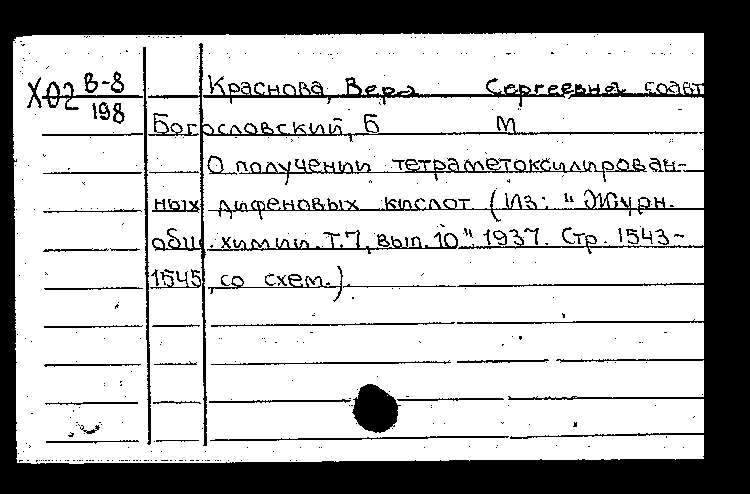 Х02 В-8
198
Краснова, Вера Сергеевна соавт
Богословский, Б М
О получении тетраметоксилирован-
ных дифеновых кислот (Из: "Журн.
общ. химии. Т.7, вып. 10" 1937. Стр. 1543-
1545, со схем.).